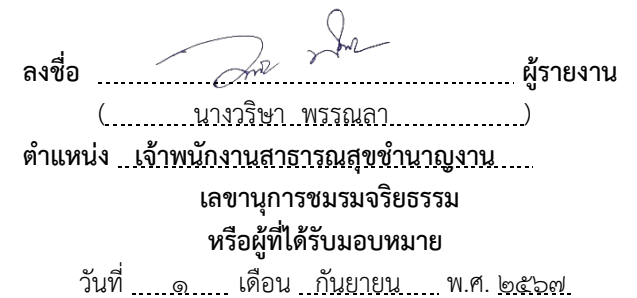 ลงชื่อ ........................................ ผู้รายงาน
(............นางวริษา พรรณลา....................)
ตำแหน่ง ..เจ้าพนักงานสาธารณสุขชำนาญงาน......
เลขานุการชมรมจริยธรรม
หรือผู้ที่ได้รับมอบหมาย
วันที่ .......๑....... เดือน ...กันยายน..... พ.ศ. ๒๕๖๗